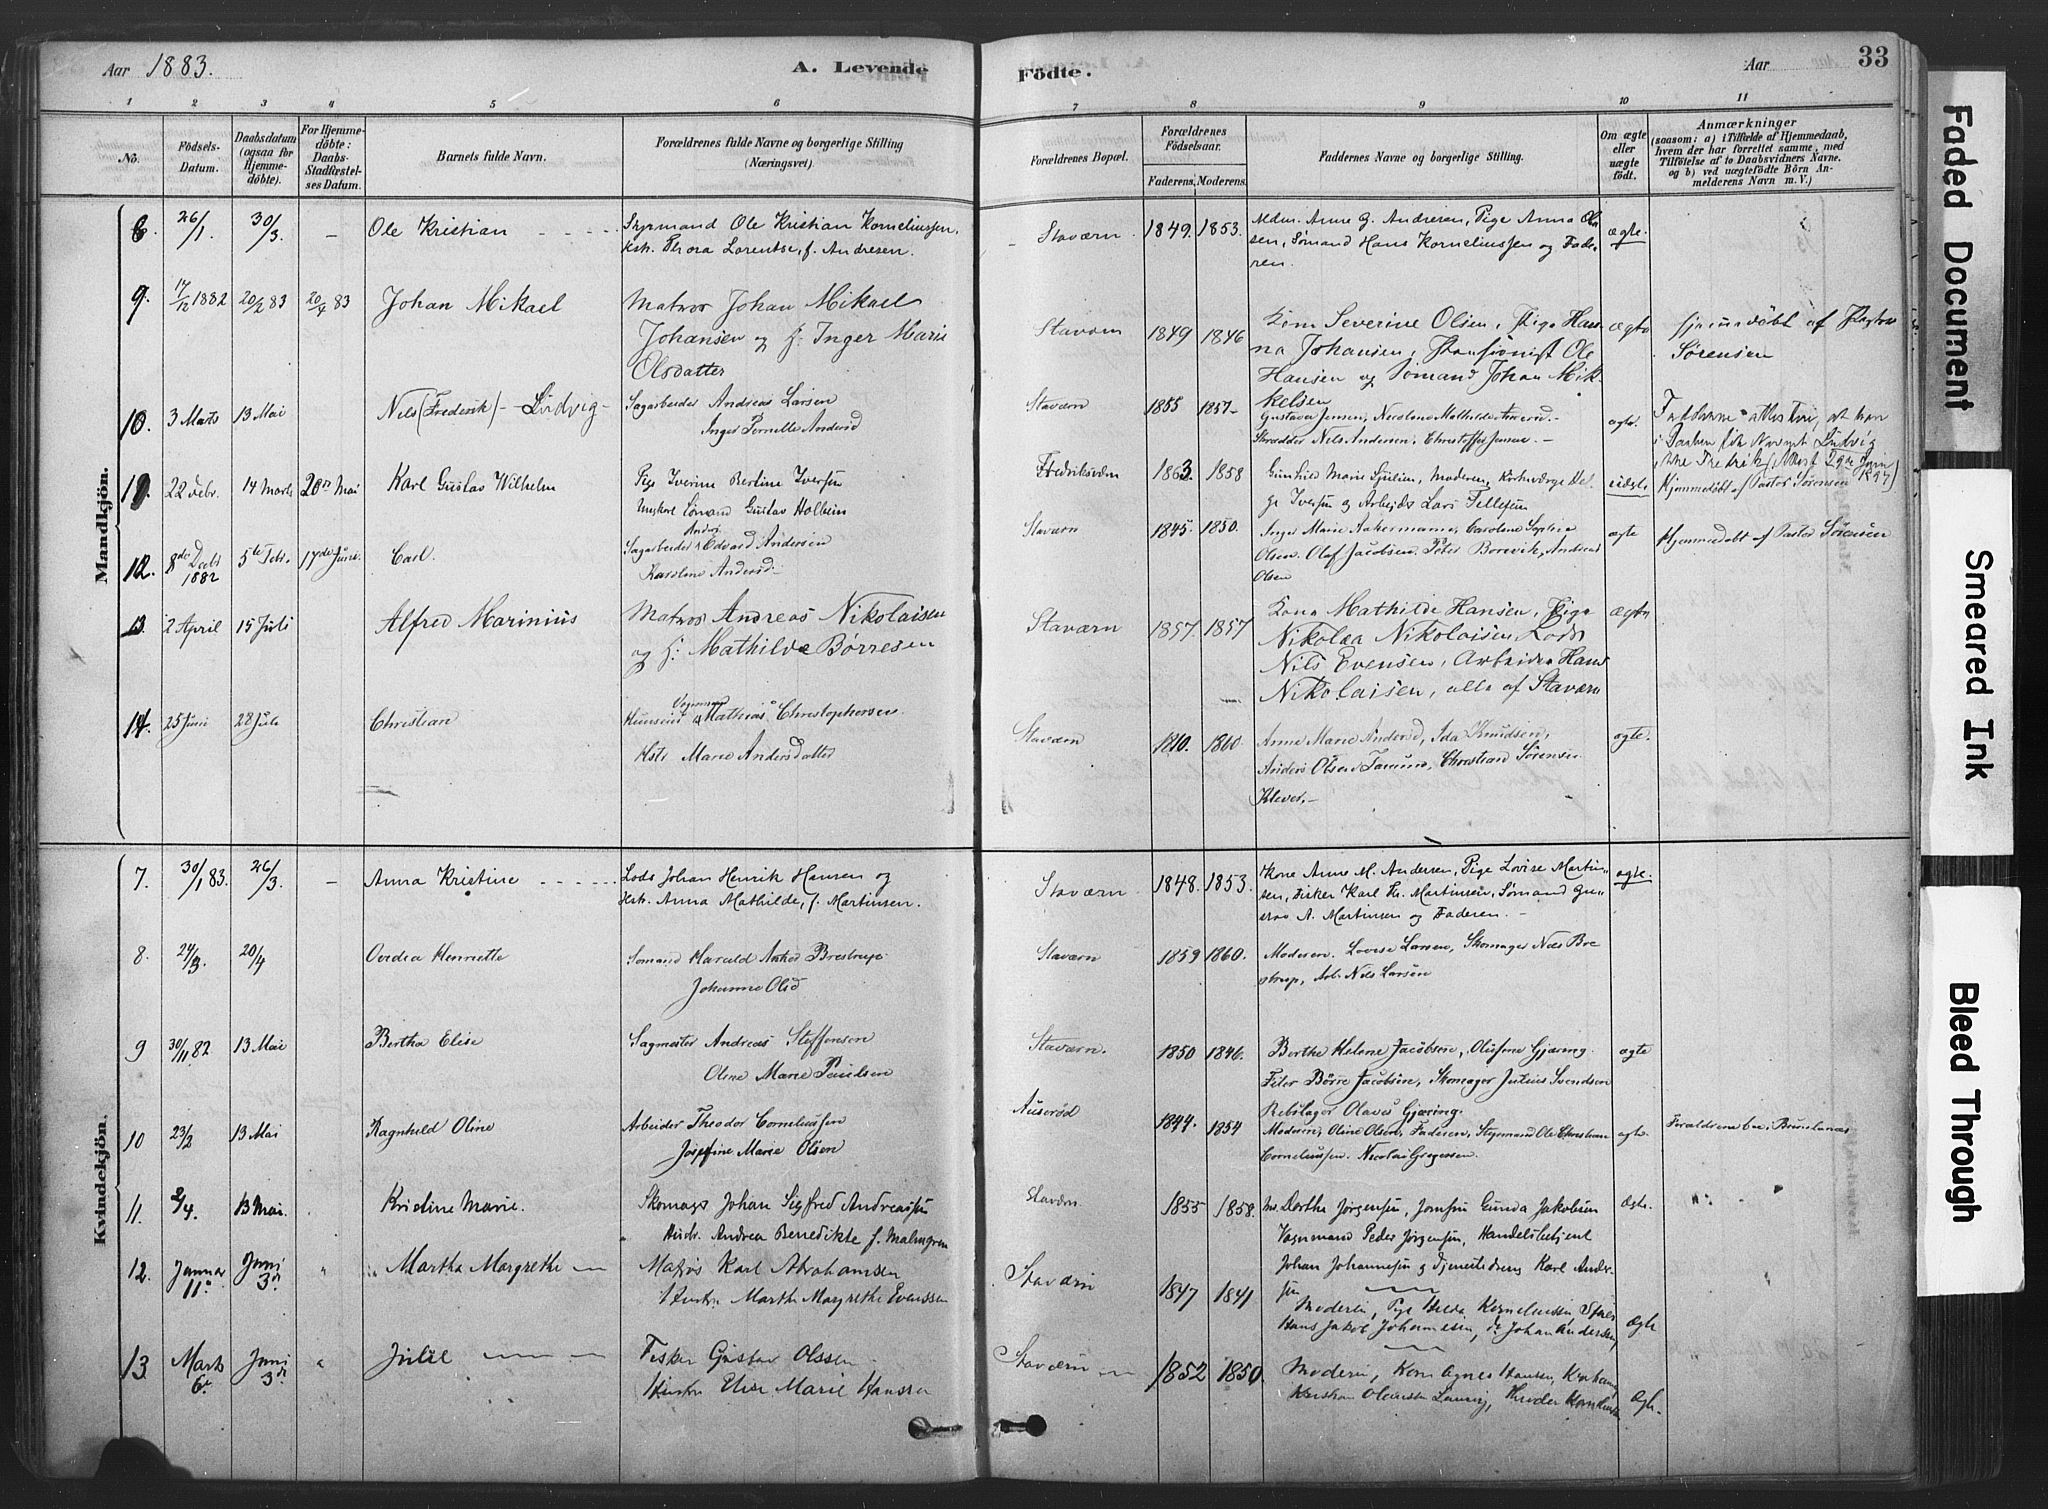 Aar 1883.
A. Levende
Födte.
Aar
33
1 2 3 4 5 6 7 8 9 10 11
No.
Födsels-
Datum.
Daabsdatum
(ogsaa for
Hjemme-
döbte).
For Hjemme-
döbte:
Daabs-
Stadfæstel-
ses Datum.
Barnets fulde Navn.
Forældrenes fulde Navne og borgerlige Stilling
(Næringsvei).
Forældrenes Bopæl.
Forældrenes
Födselsaar.
Faderens. Moderens.
Faddernes Navne og borgerlige Stilling.
Om ægte
eller
uægte
födt.
Anmærkninger
(saasom: a) i Tilfælde af Hjemmedaab,
hvem der har forrettet samme, med
Tilföielse af to Daabsvidners Navne.
og b) ved uægtefödte Börn An-
melderens Navn m. V.)
Mandkjön.
26/1. 30/3. - Ole Kristian
Styrmand Ole Kristian Korneliussen.
Hstr. Thora Lorentse, f. Andresen.
Staværn 1849. 1853.
Mdm. Anne G. Andresen, Pige Anna Ol-
sen, Sømand Hans Korneliussen og Fade-
ren.
ægte.
9. 17/12 1882 20/2 83 20/4 83 Johan Mikael
Matros Johan Mikael
Johansen og H. Inger Marie
Olsdatter
Staværn 1849 1846
Kone Severine Olsen, Pige Han-
na Johansen, Pensionist Ole
Hansen og Sømand Johan Mik-
kelsen
ægte
Hjemmedøbt af Pastor
Sørensen
10. 3 Marts 13 Mai Nils (Frederik) - Ludvig -
Sagarbeider Andreas Larsen
Inger Pernelle Andersd
Staværn 1855 1857-
Gustava Jensen, Nicoline Mathilde
Skrædder Nils Andersen, Christoffer Jensen. -
ægte.
i Daaben fik Navnet Ludvig
ikke Fredrik
22 Febr. 14 Marts 20 Mai Karl Gustav Wilhelm
Pige Iverine Bertine Iversen
Ungkarl Sømand Gustav Holbein
Fredriksværn 1863 1858
Marie Moderen, Kirkeværge Hel-
ge Iversen og Arbejds Lars Tellefsen
uægte
Hjemmedøbt af Pastor Sørensen
12. 8de Decbr 1882 5te Febr. 17de Juni Carl.
Sagarbeider Edvard Andersen
Karoline Andersd -
Staværn 1845. 1850.
Inger Marie Aakermann, Caroline Sophie
Olsen. Olaf Jacobsen, Peter Borevik, Andreas
Olsen
ægte
Hjemmedøbt af Pastor Sørensen
13. 2 April 15 Juli Alfred Marinius
Matros Andreas Nikolaisen
og H. Mathilde Børresen
Staværn 1857. 1857
Kona Mathilde Hansen, Pige
Nikolea Nikolaisen, Lods
Nils Evensen, Arbeider Hans
Nikolaisen, alle af Staværn
ægte
14. 25 Juni 28 Juli Christian
Mathias Christophersen
Hstr Marie Andersdatter
Staværn 1860.
Anne Marie Andersd, Ida Knudsen,
Anders Olsen Christian Sørensen
Klever. -
ægte.
Kvindekjön.
7. 30/1 83. 26/3. - Anna Kristine
Lods Johan Henrik Hansen og
Hstr. Anna Mathilde, f. Martinsen.
Staværn 1848. 1853.
Kone Anne M. Andersen, Pige Lovise Martin-
sen, Fisker Karl Kr. Martinsen, Sømand Gu-
stav A. Martinsen og Faderen. -
ægte.
8. 24/3. 20/4 Ovedia Henriette
Sømand Harald Anker Brestrup
Johanne Olsd
Staværn 1859 1860.
Moderen. Lovise Larsen, Skomager Nils Bre-
strup, Arb. Nils Larsen
9 30/11 82 13 Mai Bertha Elise
Sagmester Andreas Steffensen
Oline Marie Paulsen
Staværn. 1850 1846.
Berthe Helene Jacobsen, Olufine Gjæring.
Peter Børre Jacobsen, Skomager Julius Svendsen
Rebslager Olaves Gjæring.
ægte
10 23/2 13 Mai Ragnhild Oline
Arbeider Theodor Corneliussen
Josefine Marie Olsen
Auserød 1844. 1854
Moderen, Oline Olsen, Faderen, Styrmand Ole Christian
Corneliussen. Nicolai Gregersen.
ægte.
Forældrene boe i Brunlanæs
11. 2/4. 13 Mai. Kristine Marie.
Skomag. Johan Sigfred Andreassen
Hustr. Andrea Benedikte f. Malmgren
Staværn. 1855 1858.
Dorthe Jørgensen, Jomfru Gunda Jakobsen
Vognmand Peder Jørgensen, Handelsbetjent
Johan Johannesen og Tjenestedreng Karl Ander-
sen
Ægte.
12. Januar 11te Juni 3die Martha Margrethe
Matros Karl Abrahamsen
Hustru Marthe Margrethe Evenssen
Staværn 1847 1841
Moderen, Pige Hilda Korneliussen,
Hans Jakob Johannesen, do Johan Andersen
Ægte
13. Marts 6te Juni 3die Julie
Fisker Gustav Olssen
Hustru Elise Marie Hanssen
Staværn 1852 1850.
Moderen, Kone Agnes Hansen,
Ægte.
Faded Document
Smeared Ink
Bleed Through